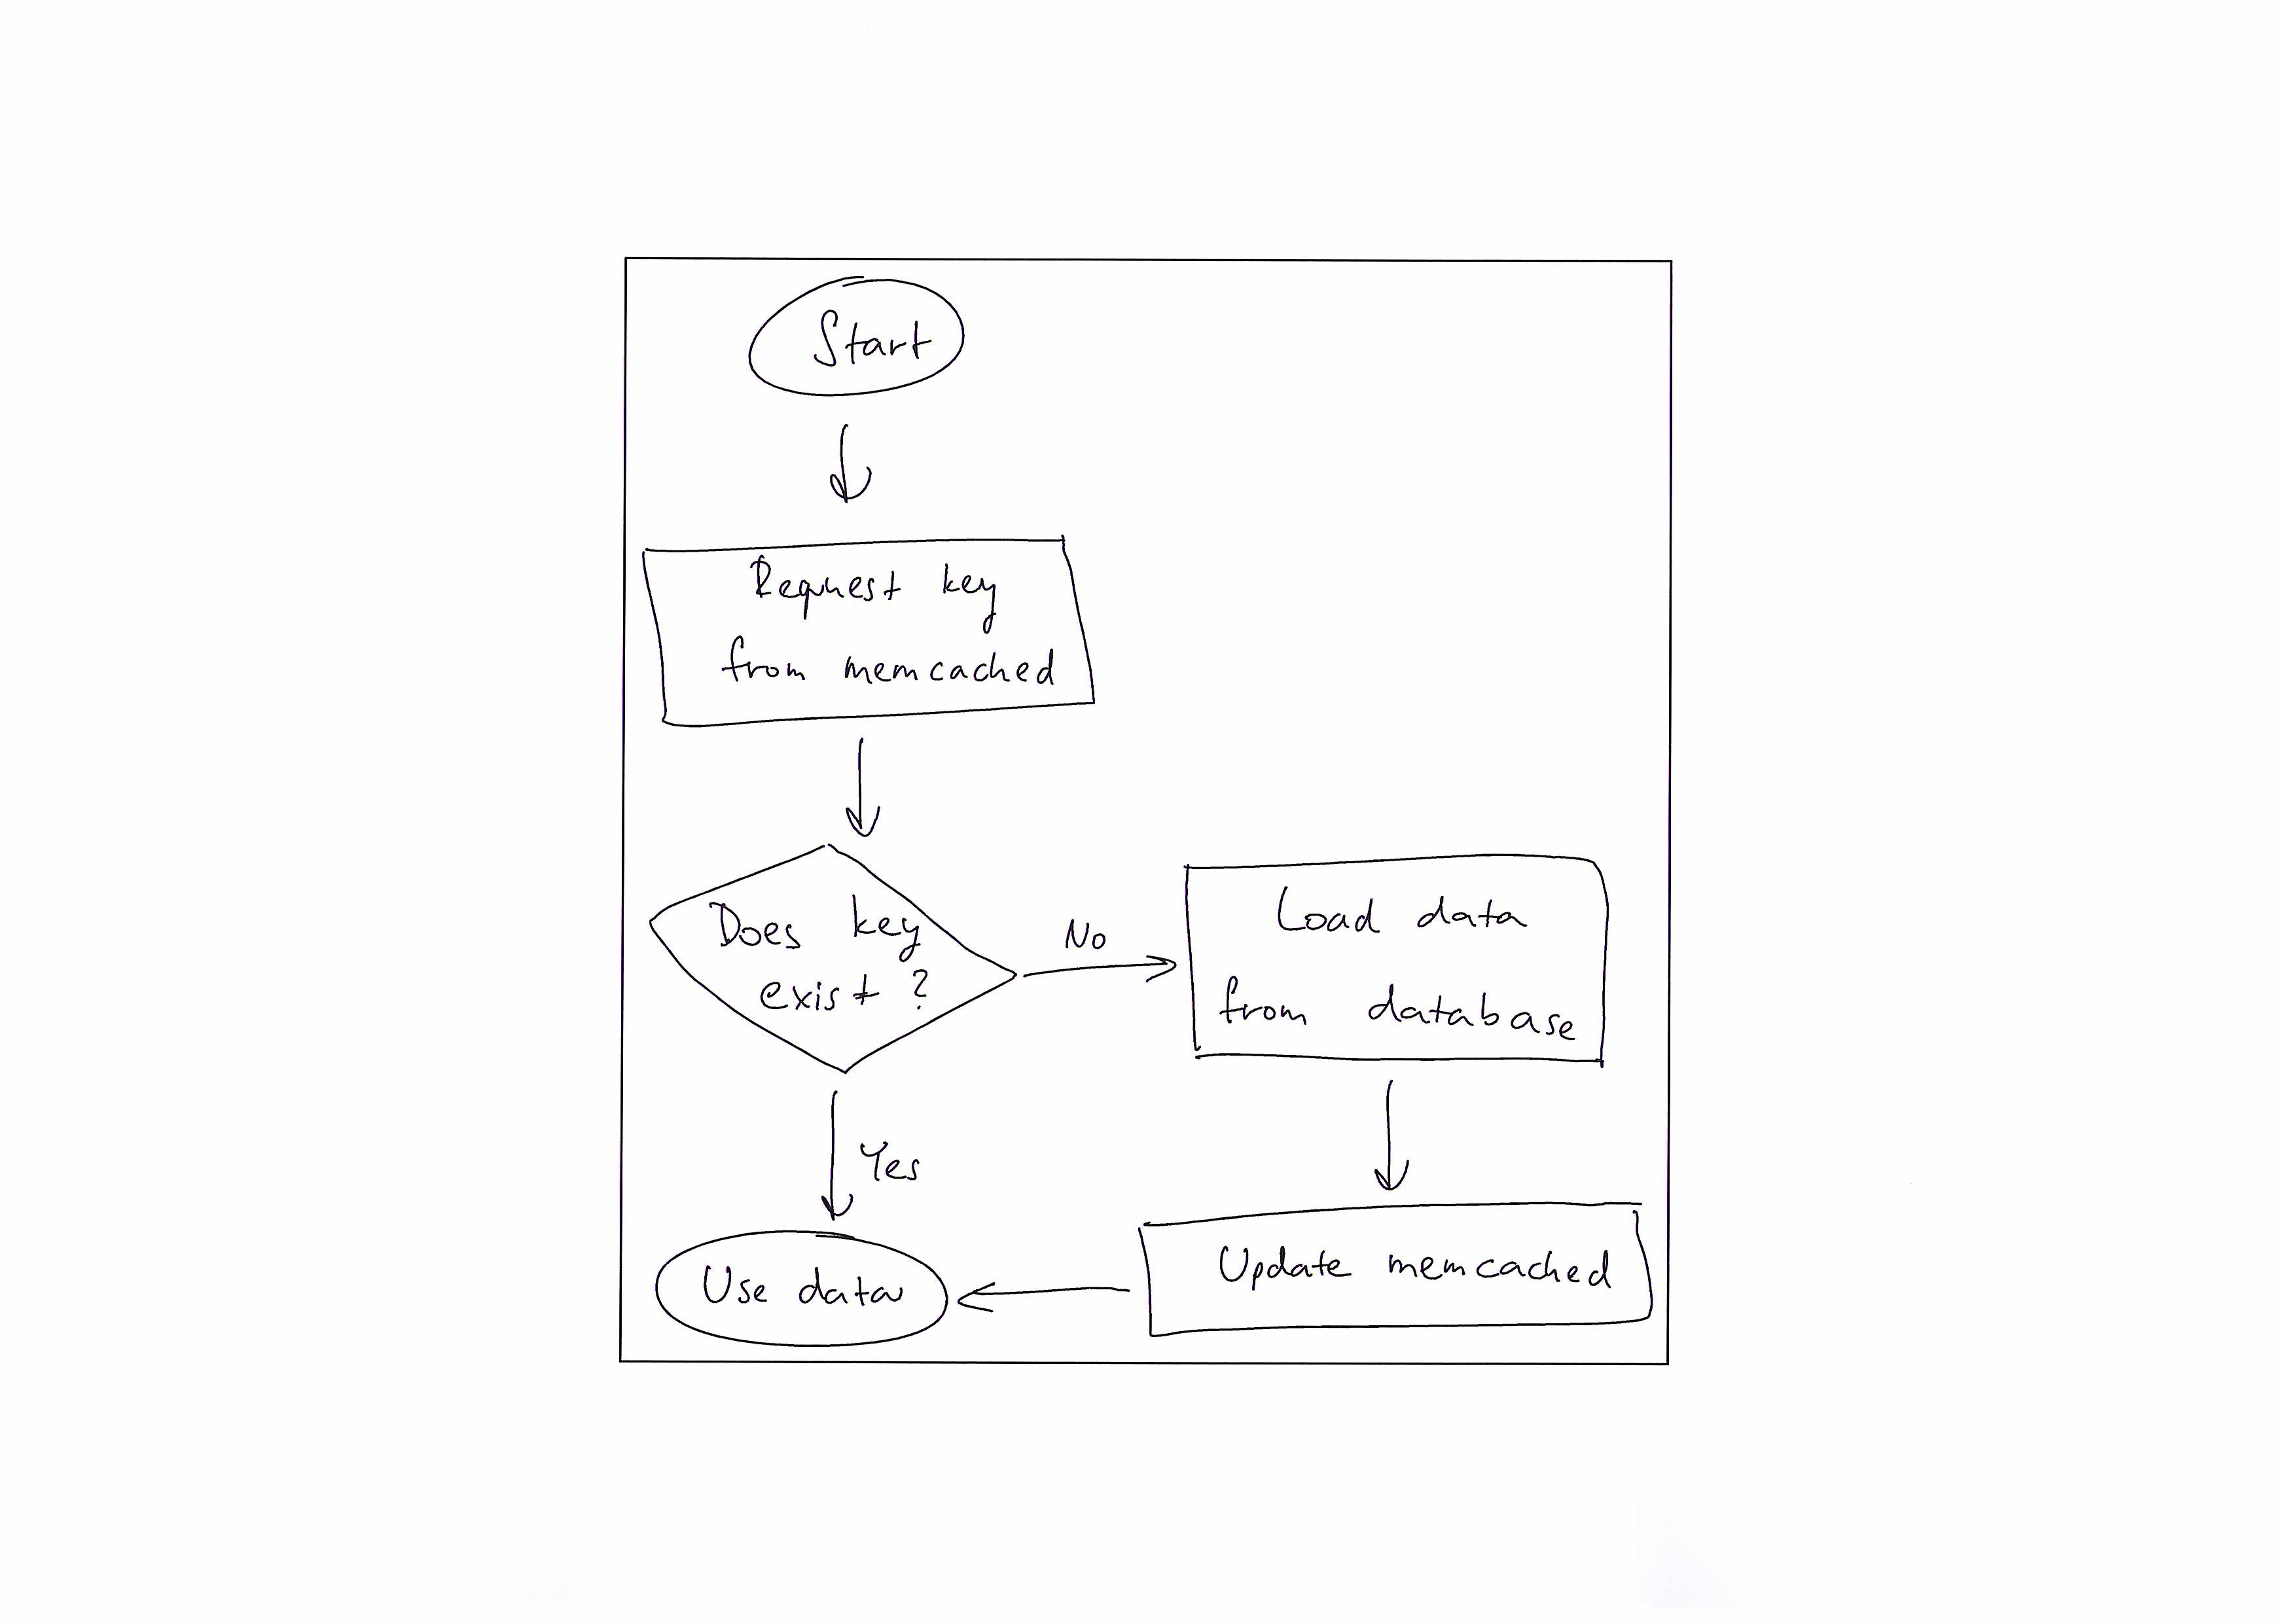 Start
Request key
from memcached
Does key
exist ?
No
Load data
from database
Yes
Use data
Update memcached